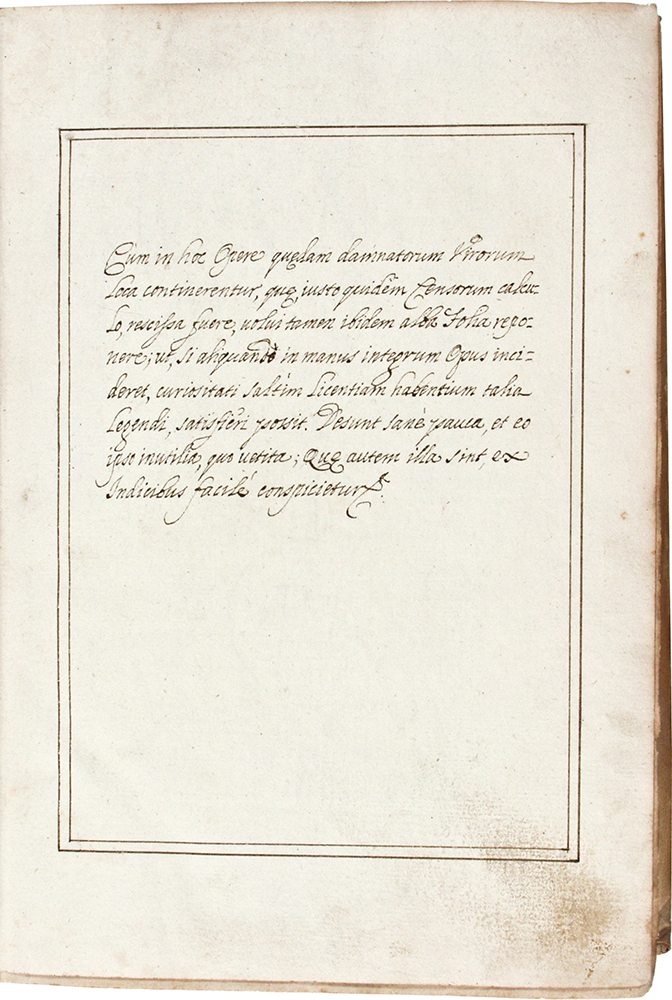 Cùm in hoc Opere quędam damnatorum Virorum
loca continerentur, quę, iusto quidèm Censorum calcu-
lo, rescissa fuere, volui tamen ibidem alba Folia repo-
nere; ut, si aliquando in manus integrum Opus inci-
deret, curiositati saltìm Licentiam habentium talia
Legendi, satisfieri possit. Desunt sanè pauca, et eo
ipso inutilia, quo vetita; Quę autem illa sint, ex
Indicibus facilè conspicietur.